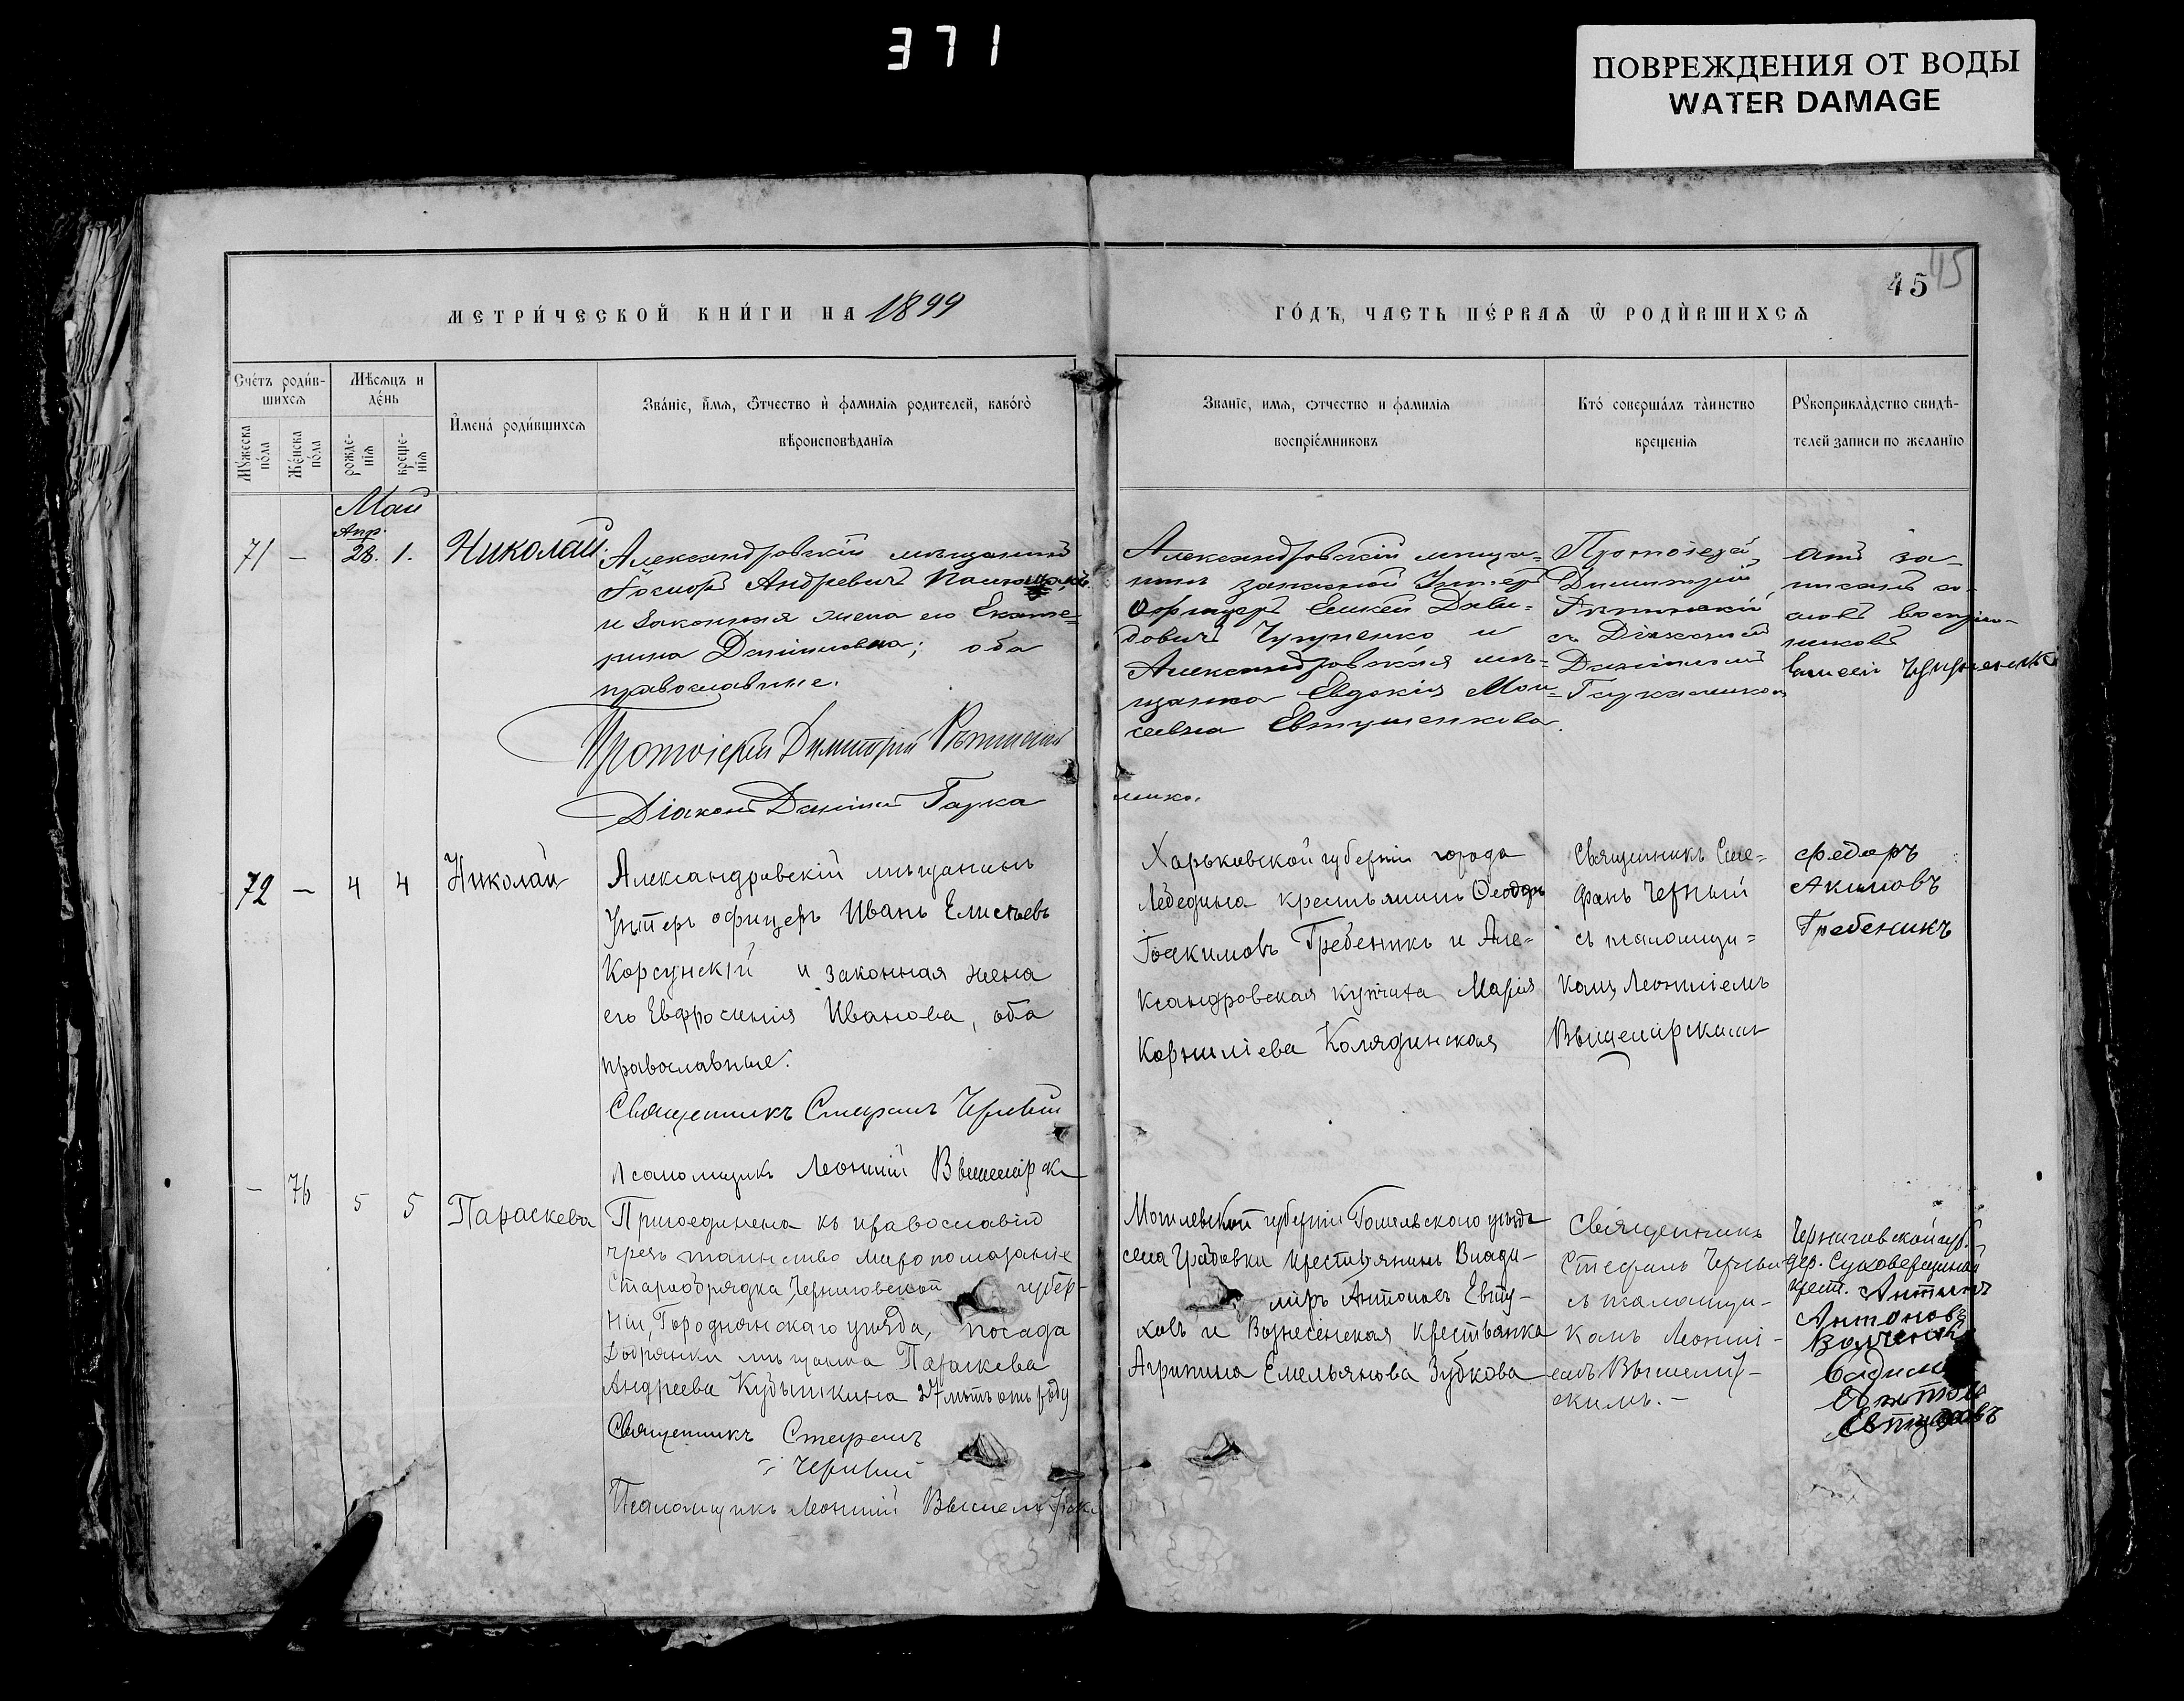 371
ПОВРЕЖДЕНИЯ ОТ ВОДЫ
WATER DAMAGE
45
45
МЕТРИ́ЧЕСКОЙ КНИ́ГИ НА 1899
ГО́ДЪ, ЧАСТЬ ПЕ́РВАѦ Ѡ҆ РОДИ́ВШИХСѦ
Сче́тъ роди́в-
шихсѧ
Мѣ́сѧцъ и
де́нь
И҆мена́ роди́вшихсѧ
Зва́нїе, и҆́мѧ, ѻ҆́тчество и҆ фамилїѧ родителей, како́гѡ
вѣроисповѣ́данїѧ
Званїе, имѧ, ѻтчество и фамилїѧ
воспрїе́мниковъ
Кто́ соверша́лъ та́инство
крещенїѧ
Рꙋкоприкла́дство свидѣ-
телей записи по желанїю
Мꙋ́жеска
по́ла
Же́нска
по́ла
рожде-
нїѧ
креще-
нїѧ
Май
Апр.
71 — 28. 1. Николай.
Александровскій мѣщанинъ
Іосифъ Андревичъ
и законная жена его Екате=
рина Даніиловна; оба
православные.
Протоіерей Димитрій
Діаконъ Даніилъ Гарка
Александровскій мѣща=
нинъ запасной Унтеръ
Офицеръ Елисей Дави=
довичъ Чугуненко и
Александровская мѣ=
щанка Евдокія Мои=
сеевна Евтушенкова.
менко.
Протоіерей
Димитрій
съ Діакономъ
Даніиломъ
Гаркаменко
72 — 4 4 Николай
Александровскій мѣщанинъ
Унтеръ офицеръ Иванъ Елисѣевъ
Корсунскій и законная жена
его Евфросинія Иванова, оба
православные.
Священникъ Стефанъ Черный
Псаломщикъ Леонтій
Харьковской губерніи города
Лебедина крестьянинъ Ѳеодоръ
Іоакимовъ Гребеникъ и Але=
ксандровская купчиха Марія
Корниліева Колядинская
Священникъ Сте=
фанъ Черный
съ псаломщи=
комъ Леонтіемъ
Федоръ
Акимовъ
Гребеникъ
— 76 5 5 Параскева
Присоединена къ православію
чрезъ таинство миропомазаніе
Старообрядка Черниговской губер-
ніи, Городнянскаго уѣзда, посада
Добрянки мѣщанка Параскева
Андреева Кубышкина 27 лѣтъ отъ роду
Священникъ Стефанъ
Черный
Псаломщикъ Леонтій
Могилевской губерніи Гомельского уѣзда
села Грабовки крестьянинъ Влади-
міръ Антоновъ Евту-
ховъ и Вознесенская крестьянка
Агрипина Емельянова Зубкова
Священникъ
Стефанъ Черный
съ псаломщи-
комъ Леонті-
емъ
скимъ. —
Черниговской губ.
дер.
крест.
Антоновъ
Евтуховъ